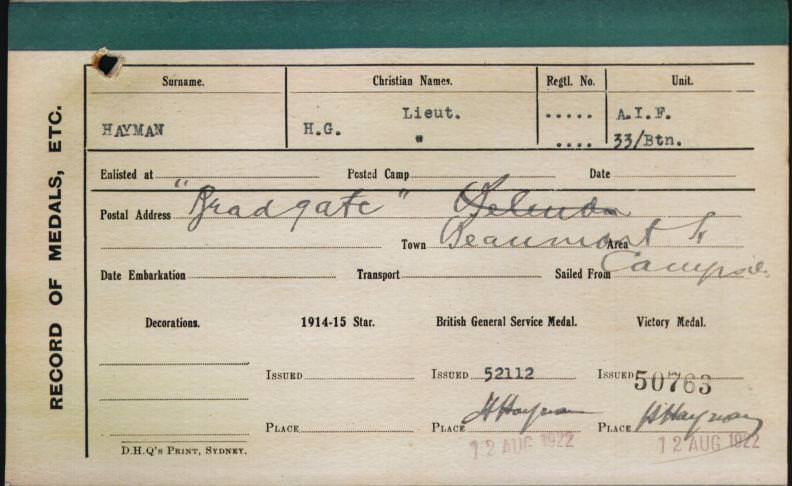 RECORD OF MEDALS, ETC.
Surname. Christian Names. Regtl. No. Unit.
HAYMAN H.G. Lieut. ..... A.I.F.
" .... 33/Btn.
Enlisted at Posted Camp Date
Postal Address "Bradgate"
Town Beaumont St Area
Campsie.
Date Embarkation Transport Sailed From
Decorations. 1914-15 Star. British General Service Medal. Victory Medal.
ISSUED ISSUED 52112 ISSUED 50763
PLACE PLACE H Hayman PLACE H Hayman
12 AUG 1922 12 AUG 1922
D.H.Q's PRINT, SYDNEY.